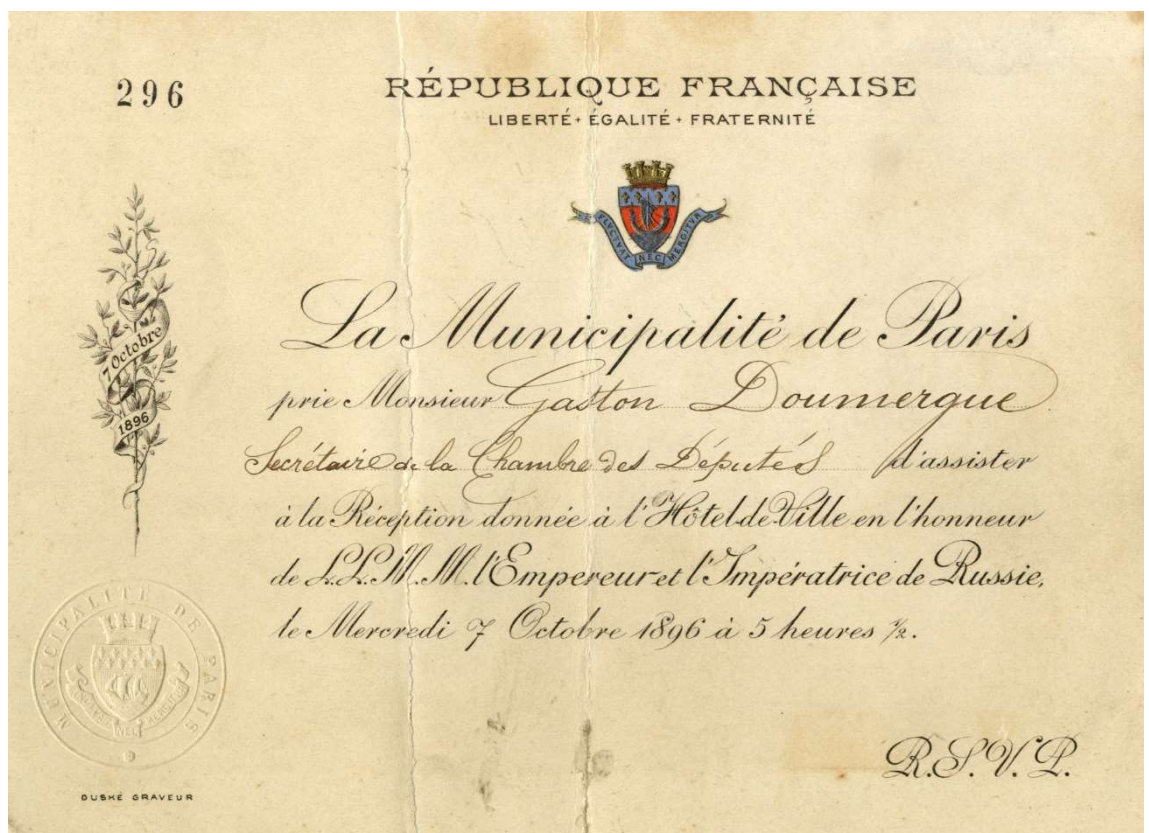 296
RÉPUBLIQUE FRANÇAISE
LIBERTÉ · ÉGALITÉ · FRATERNITÉ
FLVCTVAT NEC MERGITVR
La Municipalité de Paris
prie Monsieur Gaston Doumergue
Secrétaire de la Chambre des Députés d'assister
à la Réception donnée à l'Hôtel-de-Ville en l'honneur
de L.L.M.M. l'Empereur et l'Impératrice de Russie,
le Mercredi 7 Octobre 1896 à 5 heures ½.
7 Octobre
1896
MUNICIPALITÉ DE PARIS
FLUCTUAT NEC MERGITUR
R.S.V.P.
DUSKÉ GRAVEUR